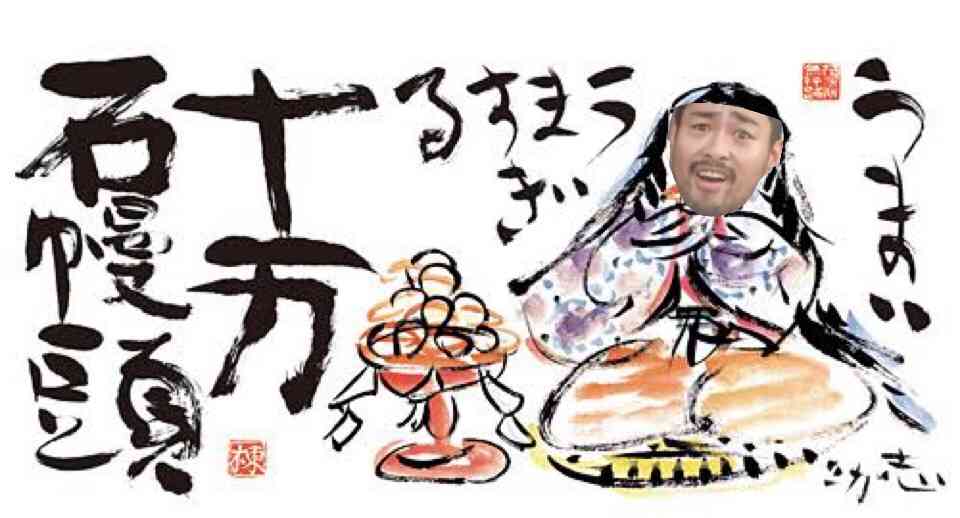 うまい
うますぎる
十万
石饅頭
志功
棟